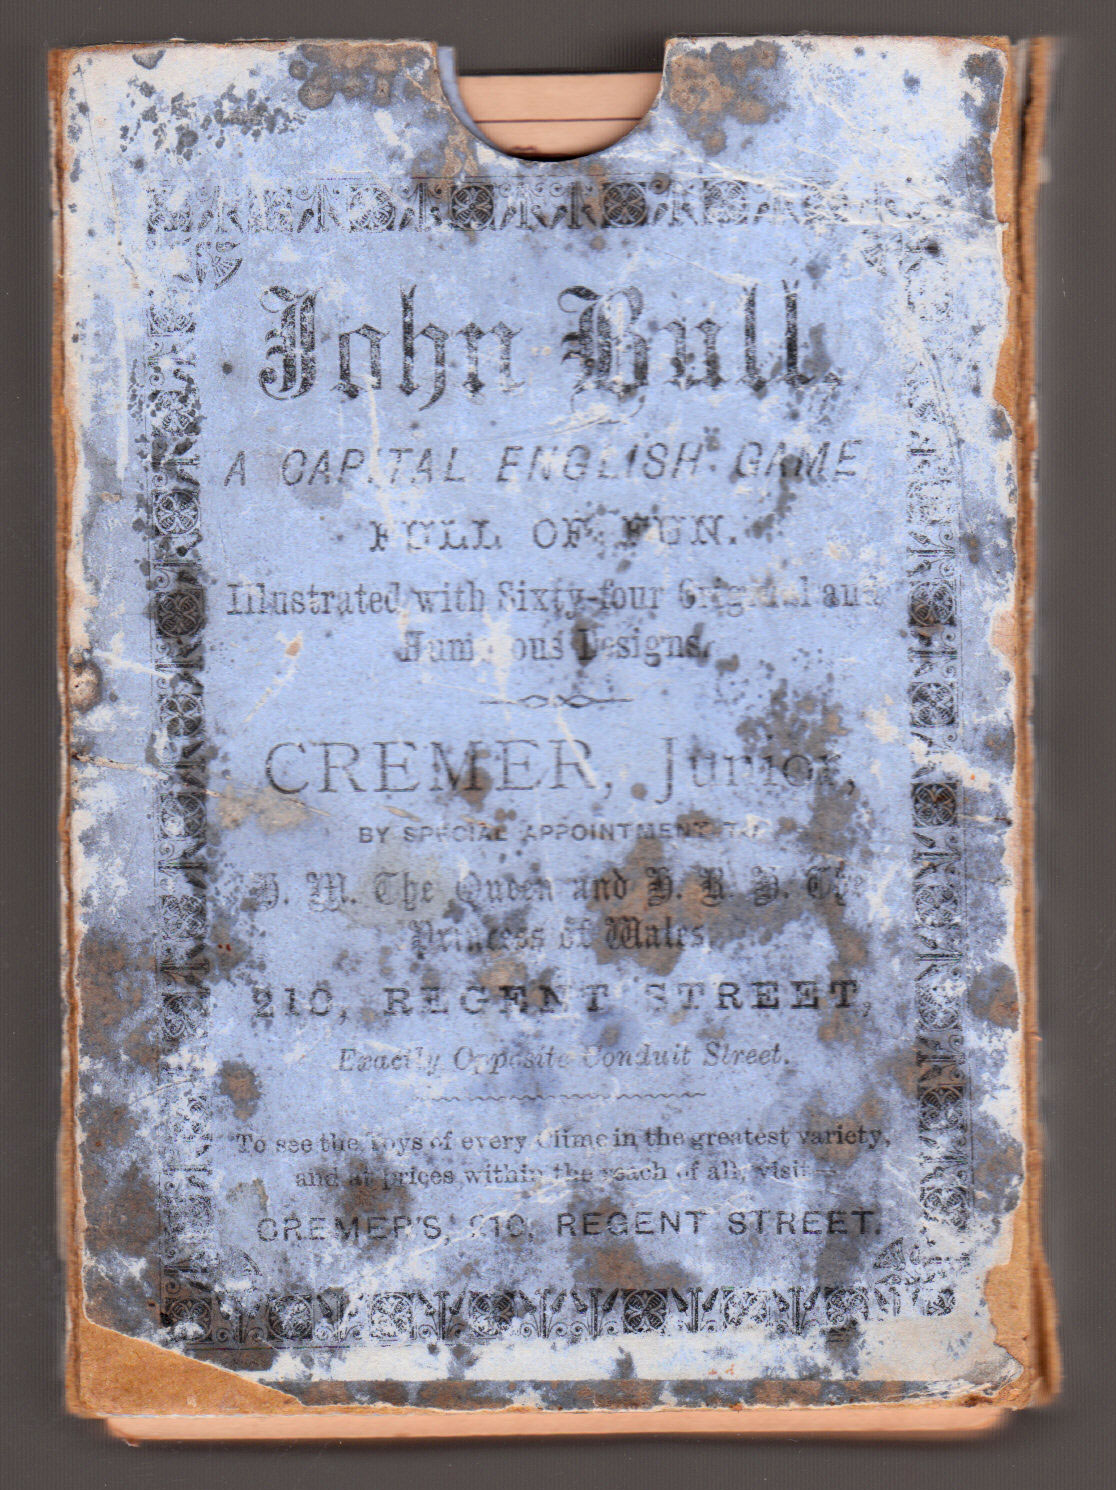 John Bull.
A CAPITAL ENGLISH GAME
FULL OF FUN.
Illustrated with Sixty-four Original and
Humorous Designs.
CREMER, Junior,
BY SPECIAL APPOINTMENT TO
H. M. The Queen and H. R. H. The
Princess of Wales,
210, REGENT STREET,
Exactly Opposite Conduit Street.
To see the Toys of every Clime in the greatest variety,
and at prices within the reach of all, visit—
CREMER'S, 210, REGENT STREET.